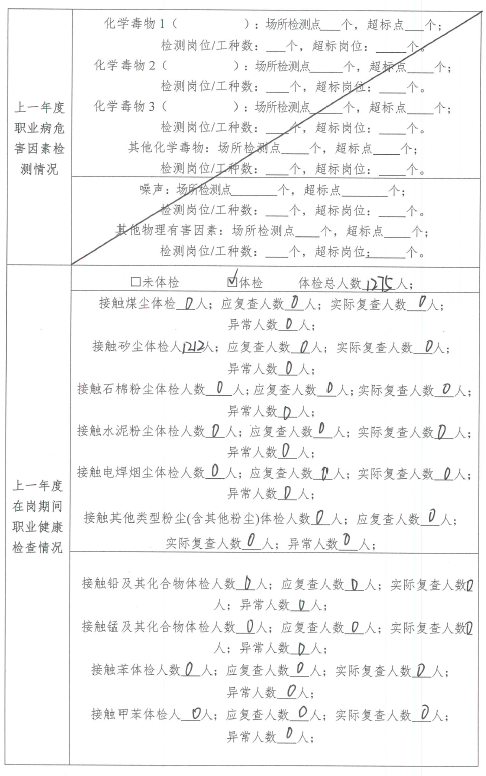 上一年度
职业病危
害因素检
测情况
化学毒物1（　　　）：场所检测点___个，超标点___个；
检测岗位/工种数：___个，超标岗位：___个。
化学毒物2（　　　）：场所检测点___个，超标点___个；
检测岗位/工种数：___个，超标岗位：___个。
化学毒物3（　　　）：场所检测点___个，超标点___个；
检测岗位/工种数：___个，超标岗位：___个。
其他化学毒物：场所检测点___个，超标点___个；
检测岗位/工种数：___个，超标岗位：___个。
噪声：场所检测点___个，超标点___个；
检测岗位/工种数：___个，超标岗位：___个。
其他物理有害因素：场所检测点___个，超标点___个；
检测岗位/工种数：___个，超标岗位：___个。
上一年度
在岗期间
职业健康
检查情况
□未体检　☑体检　体检总人数1275人；
接触煤尘体检0人；应复查人数0人；实际复查人数0人；
异常人数0人；
接触矽尘体检人1212人；应复查人数0人；实际复查人数0人；
异常人数0人；
接触石棉粉尘体检人数0人；应复查人数0人；实际复查人数0人；
异常人数0人；
接触水泥粉尘体检人数0人；应复查人数0人；实际复查人数0人；
异常人数0人；
接触电焊烟尘体检人数0人；应复查人数0人；实际复查人数0人；
异常人数0人；
接触其他类型粉尘(含其他粉尘)体检人数0人；应复查人数0人；
实际复查人数0人；异常人数0人；
接触铅及其化合物体检人数0人；应复查人数0人；实际复查人数0
人；异常人数0人；
接触锰及其化合物体检人数0人；应复查人数0人；实际复查人数0
人；异常人数0人；
接触苯体检人数0人；应复查人数0人；实际复查人数0人；
异常人数0人；
接触甲苯体检人0人；应复查人数0人；实际复查人数0人；
异常人数0人；